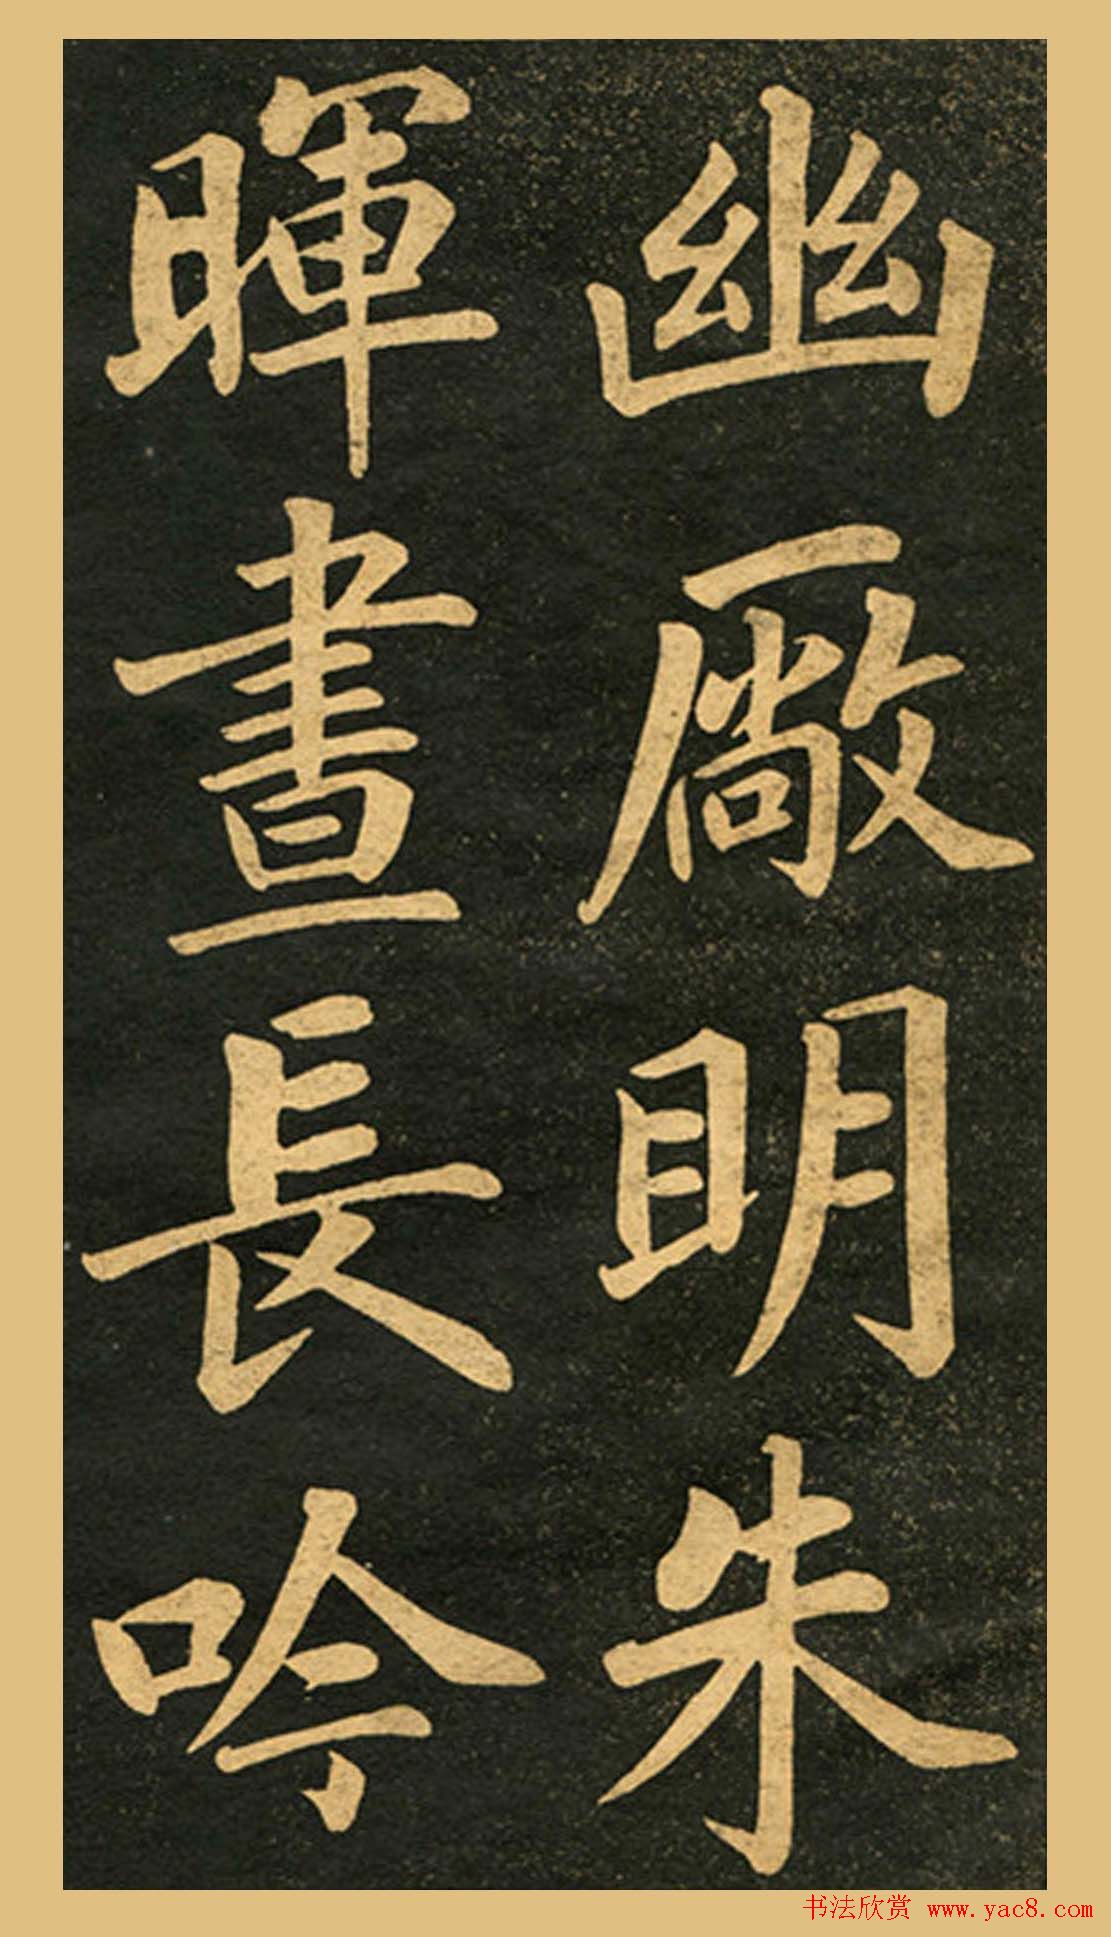 幽厰明朱
暉晝長吟
书法欣赏 www.yac8.com